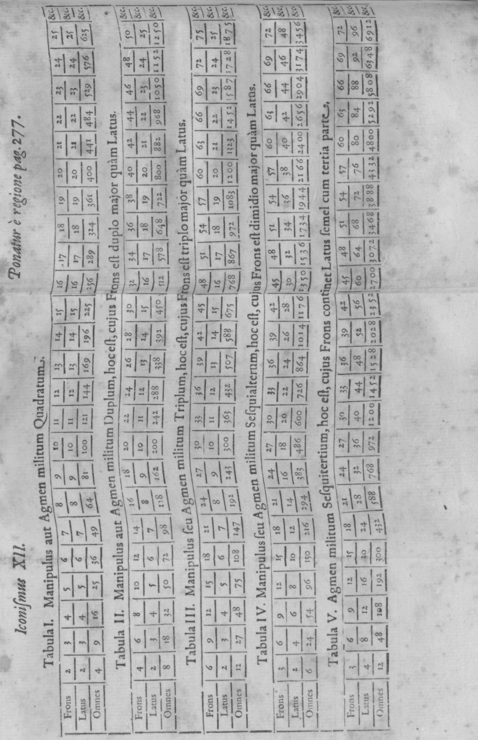 Iconismus XII. Ponatur è regione pag. 277.
Tabula I. Manipulus aut Agmen militum Quadratum.
Frons 2 3 4 5 6 7 8 9 10 11 12 13 14 15 16 17 18 19 20 21 22 23 24 25 &c.
Latus 2 3 4 5 6 7 8 9 10 11 12 13 14 15 16 17 18 19 20 21 22 23 24 25 &c.
Omnes 4 9 16 25 36 49 64 81 100 121 144 169 196 225 256 289 324 361 400 441 484 529 576 625 &c.
Tabula II. Manipulus aut Agmen militum Duplum, hoc est, cujus Frons est duplo major quàm Latus.
Frons 4 6 8 10 12 14 16 18 20 22 24 26 28 30 32 34 36 38 40 42 44 46 48 50 &c.
Latus 2 3 4 5 6 7 8 9 10 11 12 13 14 15 16 17 18 19 20 21 22 23 24 25 &c.
Omnes 8 18 32 50 72 98 128 162 200 242 288 338 392 450 512 578 648 722 800 882 968 1152 1250 &c.
Tabula III. Manipulus seu Agmen militum Triplum, hoc est, cujus Frons est triplo major quàm Latus.
Frons 6 9 12 15 18 21 24 27 30 33 36 39 42 45 48 51 54 57 60 63 66 69 72 75 &c.
Latus 2 3 4 5 6 7 8 9 10 11 12 13 14 15 16 17 18 19 20 21 22 23 24 25 &c.
Omnes 12 27 48 75 108 147 192 243 300 363 432 507 588 675 768 867 972 1083 1200 1452 1587 1728 1875 &c.
Tabula IV. Manipulus seu Agmen militum Sesquialterum, hoc est, cujus Frons est dimidio major quàm Latus.
Frons 3 6 9 12 15 18 21 24 27 30 33 36 39 42 45 48 51 54 57 60 63 66 69 72 &c.
Latus 2 4 6 8 10 12 14 16 18 20 22 24 26 28 30 32 34 36 38 40 42 44 46 48 &c.
Omnes 6 24 54 96 150 216 294 383 486 600 726 864 1014 1176 1350 1536 1734 1944 2166 2400 2656 2904 3174 3456 &c.
Tabula V. Agmen militum Sesquitertium, hoc est, cujus Frons continet Latus semel cum tertia parte.
Frons 3 6 9 12 15 18 21 24 27 30 33 36 39 42 45 48 51 54 57 60 63 66 69 72 &c.
Latus 4 8 12 16 20 24 28 32 36 40 44 48 52 56 60 64 68 72 76 80 84 88 92 96 &c.
Omnes 12 48 108 192 300 432 588 768 972 1200 1452 1528 2028 2352 2700 3072 3468 3888 4332 4800 5292 5808 6348 6912 &c.